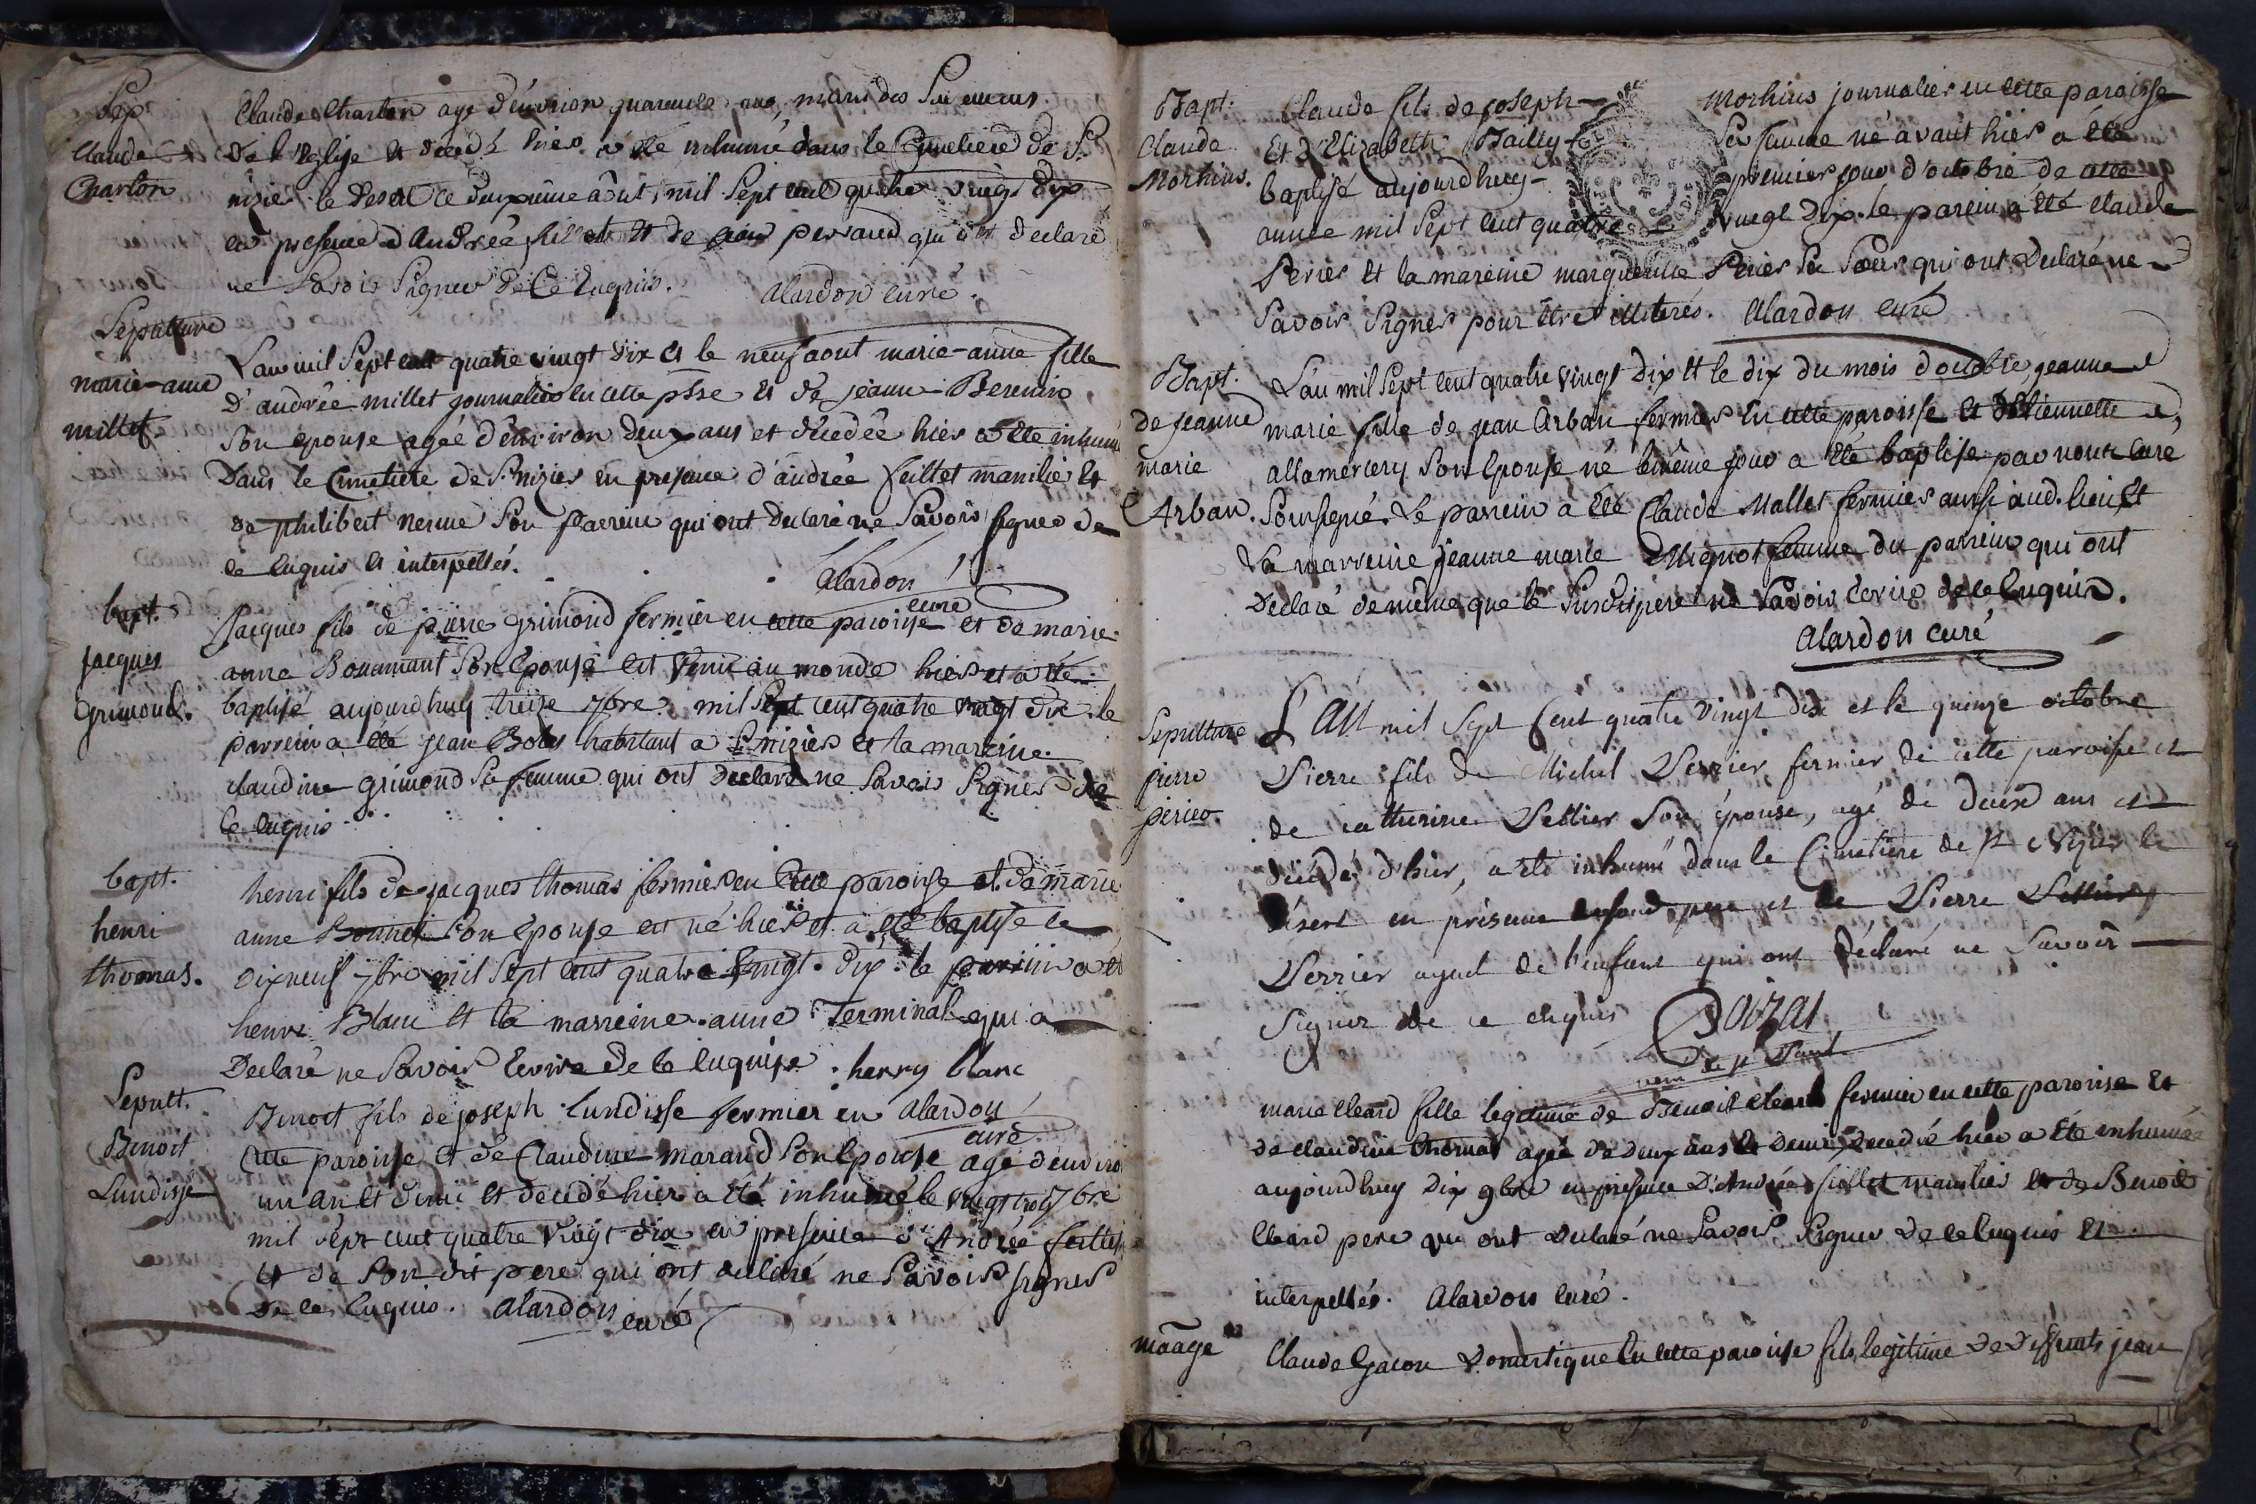 Sep.
Claude
Charlon
Claude Charlon agé d'environ quarante ans, muni des Sacremens
de l'Eglise et décédé hier a été inhumé dans le Cimetiere de St.
nizier le desert ce deuxième août, mil Sept cent quatre vingt dix
en presence d'Andrée fillet et de perraud qui ont declaré
ne Savoir Signer de Ce Enquis. alardon curé.
Sepulture
marie-anne
millet
L'an mil Sept cent quatre vingt dix et le neuf aout marie-anne fille
d'andrée millet journalier en cette psse et de jeanne
Son epouse agée d'environ deux ans et décédée hier a été inhumé
Dans le Cimetiere de St. nizier en presence d'andrée feillet manilier et
de philibert nerme Son parrein qui ont declaré ne Savoir signer de
ce enquis et interpellés.
alardon
curé
bapt.
jacques
grimond.
Jacques fils de pierre grimond fermier en cette paroisse et de marie
anne Bouamant Son Epouse est venu au monde hier et a été
baptisé aujourdhuy treize 7bre mil Sept cent quatre vingt dix. le
parrein a été jean habitant a St nizier et la mareine
claudine grimond Sa femme qui ont declaré ne Savoir Signer de
Ce enquis
bapt.
henri
thomas.
henri fils de jacques thomas fermier en Cette paroisse et de marie
anne Bonnet Son Epouse est né hier et a été baptisé le
dix neuf 7bre mil Sept cent quatre vingt dix. le parrein a été
henri Blanc et la marreine anne Terminal qui a
Declaré ne Savoir Ecrire de Ce enquise. henry blanc
alardon
curé
Sepult.
Benoit
Lundisse
Benoit fils de joseph Lundisse fermier en
Cette paroisse et de Claudine maraud Son Epouse agé denviron
un an et demi et decedé hier a été inhumé le vingt trois 7bre
mil Sept cent quatre vingt dix en presence d'Andrée feillet
et de Son dit pere qui ont declaré ne Savoir signer
de ce Enquis. alardon curé
Bapt.
Claude
Morhins.
Claude fils de joseph Morhins journalier en cette paroisse
Et d'Elizabeth Bailly Sa femme né avant hier a été
baptisé aujourdhuy premier jour d'octobre de
année mil Sept cent quatre vingt Dix. le parein a été claude
Perier et la mareine marguerite Perier Sa Soeur qui ont Declaré ne
Savoir Signer pour être illiterés. Alardon curé
Bapt.
de jeanne
marie
Arban.
L'an mil Sept cent quatre vingt Dix et le dix du mois d'octobre, jeanne
marie fille de jean Arban fermier En cette paroisse et d'Etiennette
allamercery Son Epouse né le même jour a été baptisé par nous curé
Soussigné. Le parrein a été Claude Mallet fermier aussi aud. lieu et
La marreine jeanne marie Mignot femme du parrein qui ont
Declaré de même que le Susdit pere ne Savoir Ecrire de ce Enquis.
alardon curé
Sepulture
pierre
perier.
L'an mil Sept Cent quatre vingt dix et le quinze octobre
Pierre fils de Michel Perrier fermier de cette paroisse et
de catherine Pellier Son épouse, agé de deux ans et
décédé d'hier, a été inhumé dans le Cimetiere de St Nizier le
désert en présence dudit pere et de Pierre
Perrier ayeul de l'enfant qui ont déclaré ne Savoir
Signer de ce enquis
de St Paul
marie cleard fille legitime de Benoit cleard fermier en cette paroisse et
de claudine thomas agée de deux ans et demi decedée hier a été inhumée
aujourdhuy dix 9bre en presence D'Andrée feillet manilier et de Benoit
Cleard pere qui ont declaré ne Savoir Signer de ce enquis et
interpellés. alardon curé.
mãage
Claude Gacon Domestique En cette paroisse fils legitime de deffunts jean